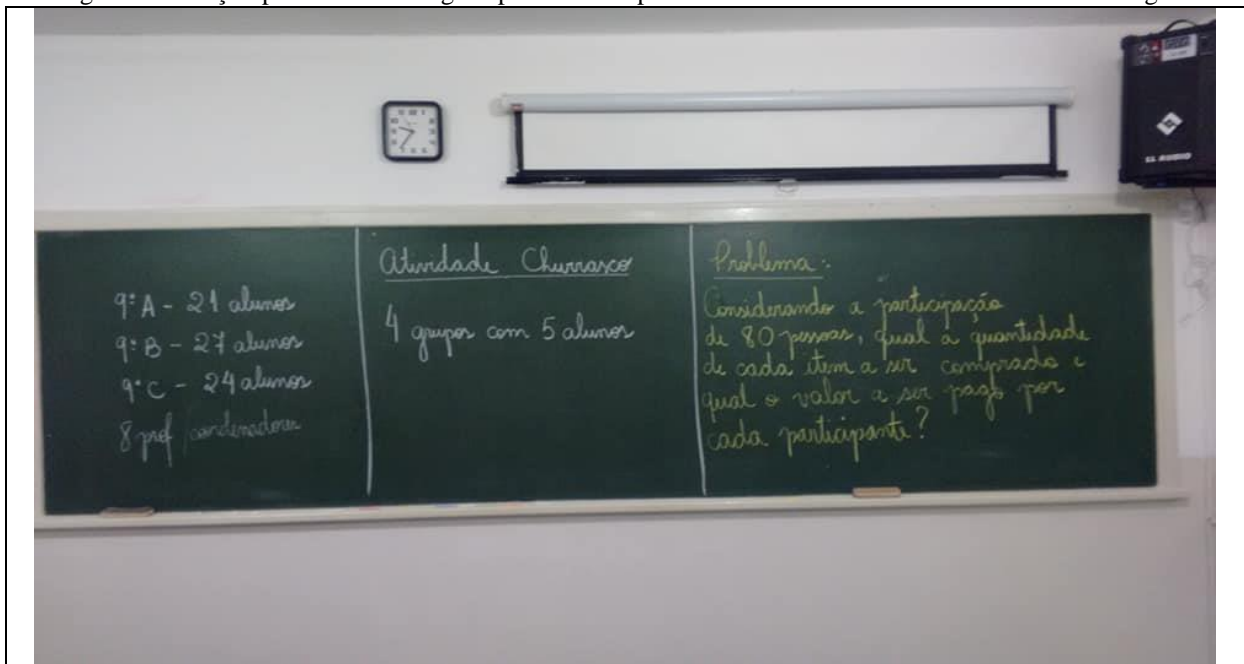 9º A - 21 alunos
9º B - 27 alunos
9º C - 24 alunos
8 prof / cordenadores
Atividade Churrasco
4 grupos com 5 alunos
Problema:
Considerando a participação
de 80 pessoas, qual a quantidade
de cada item a ser comprado e
qual o valor a ser pago por
cada participante?
LL AUDIO